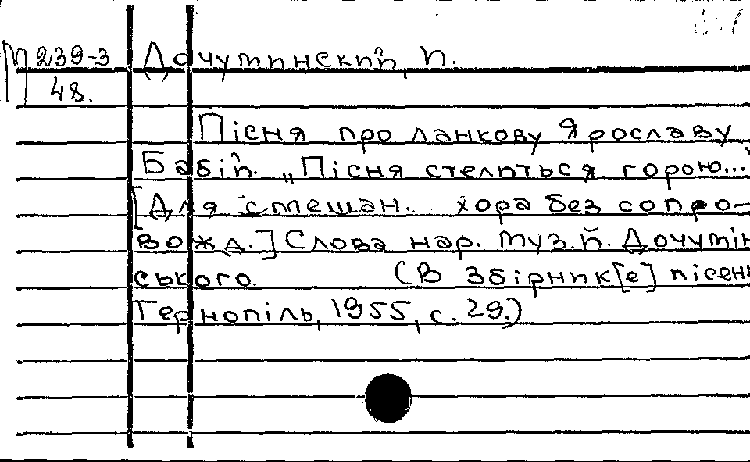 М239-3 Дочутинский, П.
48.
Пісня про ланкову Ярославу
Бабій. „Пісня стелиться горою...
[Для смешан. хора без сопро-
вожд.] Слова нар. Муз. Й. Дочутін
ського (В збірник[е] пісень
Тернопіль, 1955, с. 29.)